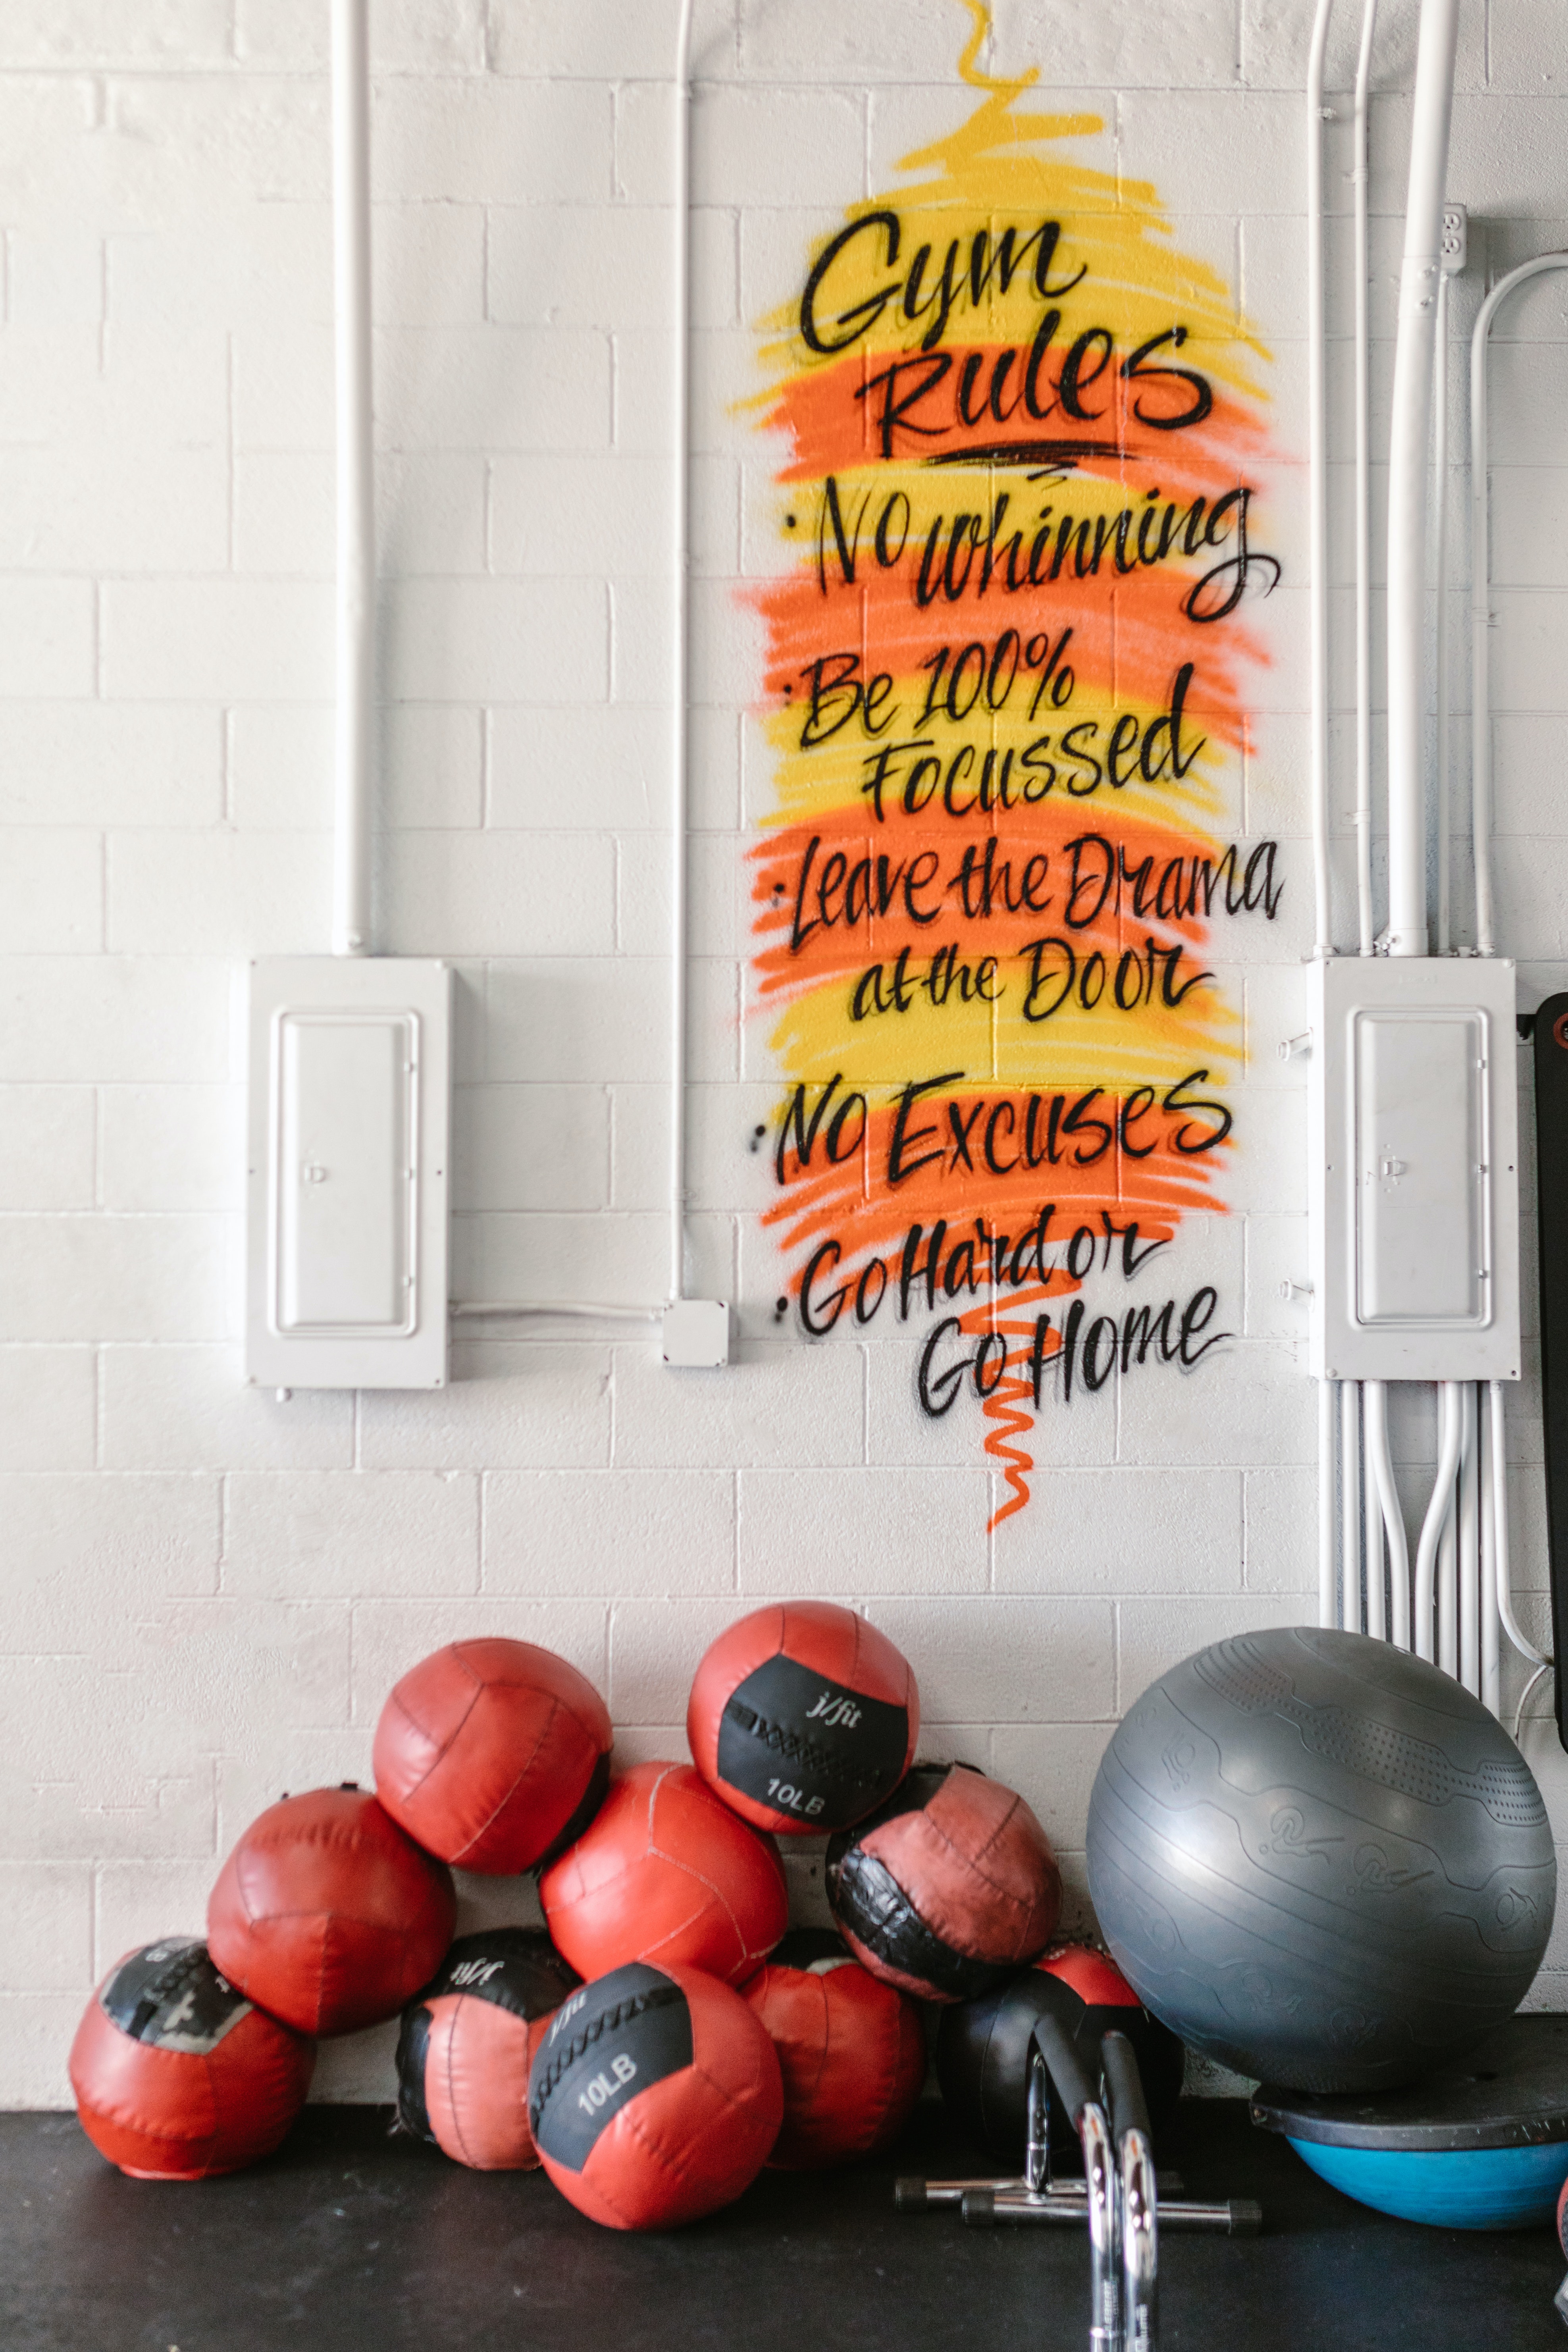 Gym
Rules
• No whinning
• Be 100%
Focussed
• Leave the Drama
at the Door
• No Excuses
• Go Hard or
Go Home
j/fit
10LB
j/fit
10LB